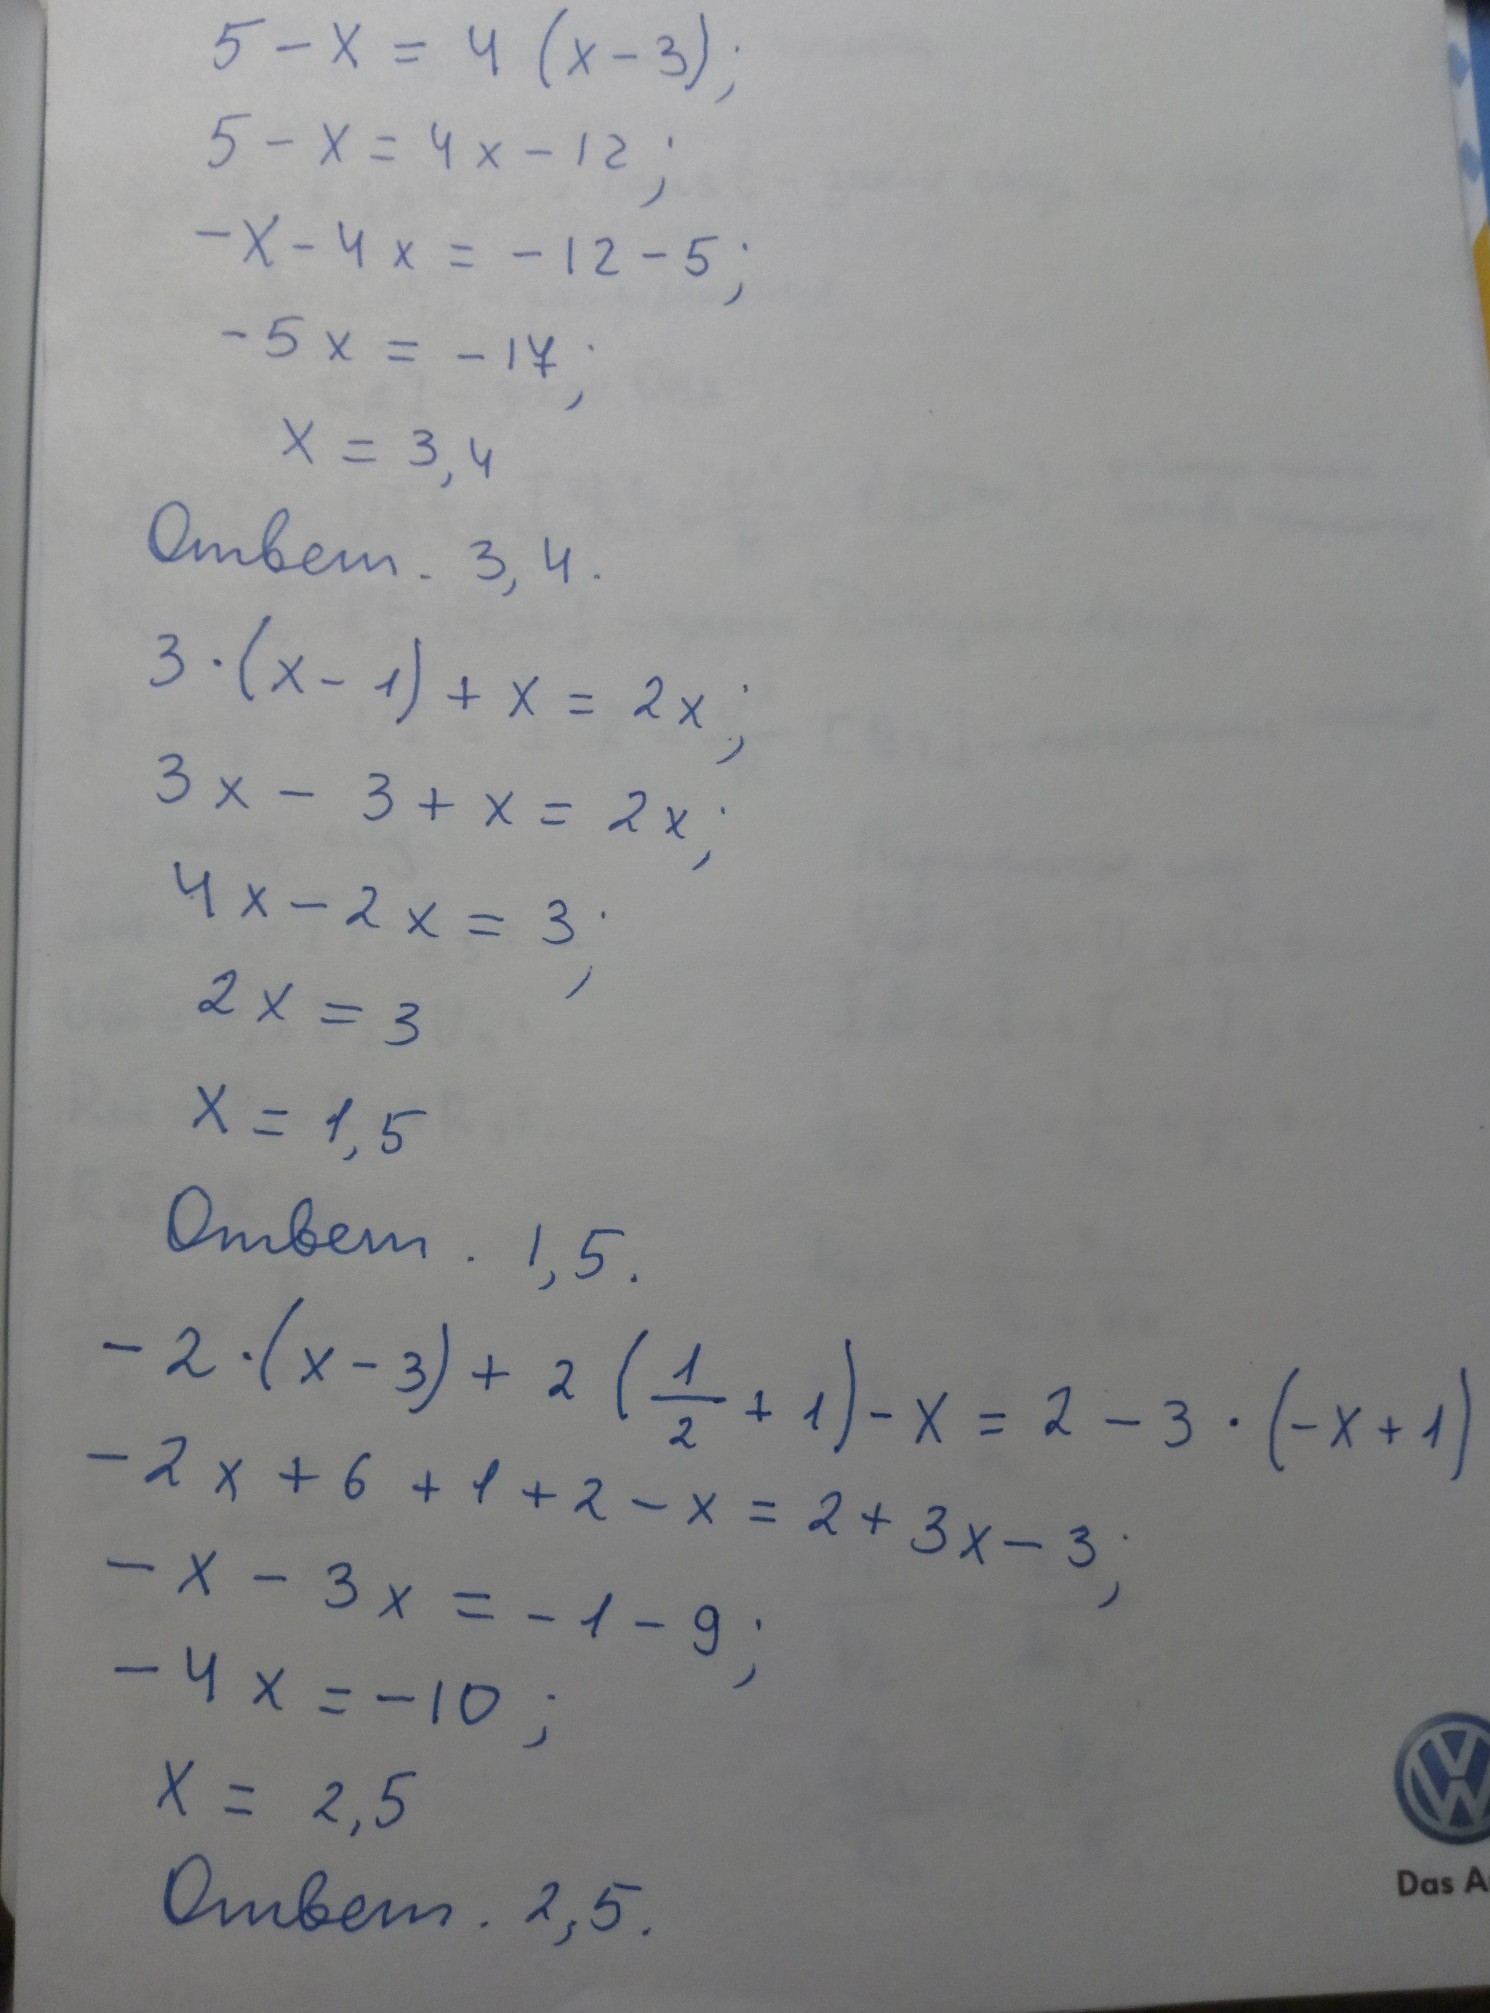 5 - x = 4 (x - 3);
5 - x = 4x - 12;
-x - 4x = -12 - 5;
-5x = -17;
x = 3,4
Ответ. 3,4.
3·(x - 1) + x = 2x;
3x - 3 + x = 2x;
4x - 2x = 3;
2x = 3
x = 1,5
Ответ. 1,5.
-2·(x - 3) + 2 (1/2 + 1) - x = 2 - 3·(-x + 1)
-2x + 6 + 1 + 2 - x = 2 + 3x - 3;
-x - 3x = -1 - 9;
-4x = -10;
x = 2,5
Ответ. 2,5.
Das